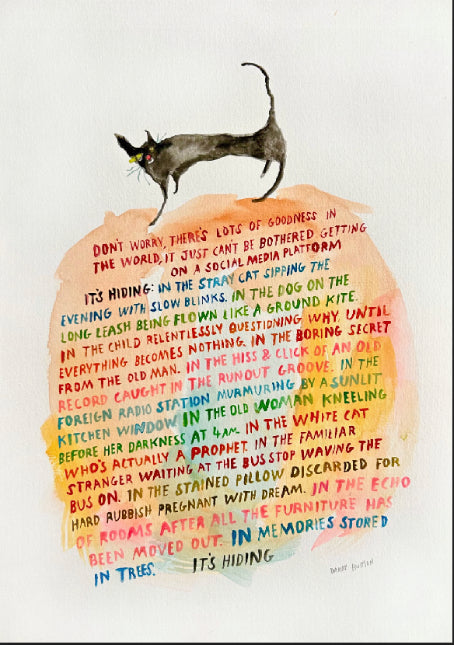 DON'T WORRY, THERE'S LOTS OF GOODNESS IN
THE WORLD, IT JUST CAN'T BE BOTHERED GETTING
ON A SOCIAL MEDIA PLATFORM
IT'S HIDING: IN THE STRAY CAT SIPPING THE
EVENING WITH SLOW BLINKS. IN THE DOG ON THE
LONG LEASH BEING FLOWN LIKE A GROUND KITE.
IN THE CHILD RELENTLESSLY QUESTIONING WHY, UNTIL
EVERYTHING BECOMES NOTHING. IN THE BORING SECRET
FROM THE OLD MAN. IN THE HISS & CLICK OF AN OLD
RECORD CAUGHT IN THE RUNOUT GROOVE. IN THE
FOREIGN RADIO STATION MURMURING BY A SUNLIT
KITCHEN WINDOW IN THE OLD WOMAN KNEELING
BEFORE HER DARKNESS AT 4AM. IN THE WHITE CAT
WHO'S ACTUALLY A PROPHET. IN THE FAMILIAR
STRANGER WAITING AT THE BUS STOP WAVING THE
BUS ON. IN THE STAINED PILLOW DISCARDED FOR
HARD RUBBISH PREGNANT WITH DREAM. IN THE ECHO
OF ROOMS AFTER ALL THE FURNITURE HAS
BEEN MOVED OUT. IN MEMORIES STORED
IN TREES. IT'S HIDING